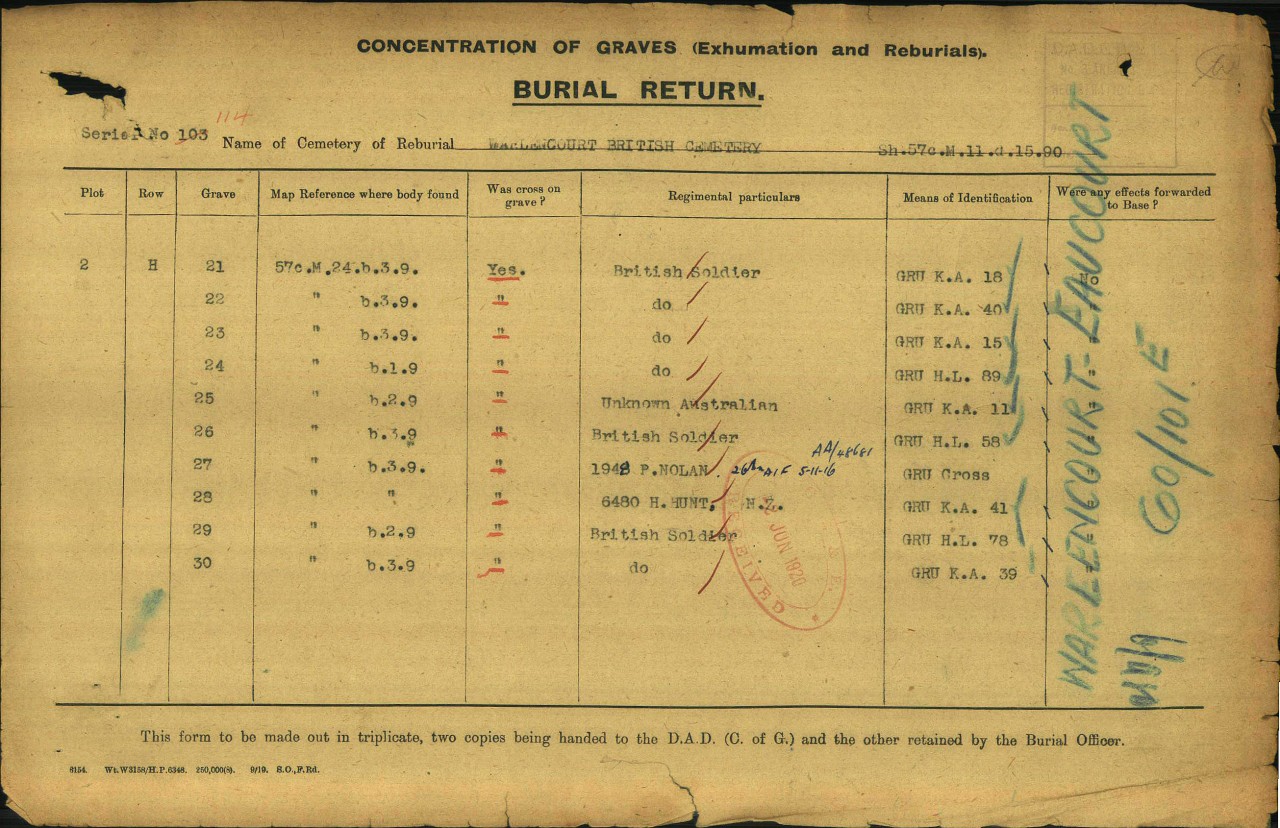 CONCENTRATION OF GRAVES (Exhumation and Reburials).
BURIAL RETURN.
114
Serial No 103 Name of Cemetery of Reburial WARLENCOURT BRITISH CEMETERY Sh.57c.M.11.d.15.90
Plot Row Grave Map Reference where body found Was cross on grave? Regimental particulars Means of Identification Were any effects forwarded to Base?
2 H 21 57c.M.24.b.3.9. Yes. British Soldier GRU K.A. 18 No
22 " b.3.9. " do GRU K.A. 40
23 " b.3.9. " do GRU K.A. 15
24 " b.1.9 " do GRU H.L. 89
25 " b.2.9 " Unknown Australian GRU K.A. 11
26 " b.3.9 " British Soldier GRU H.L. 58
AA/48681
27 " b.3.9. " 1948 P.NOLAN. 26th AIF 5-11-16 GRU Cross
28 " " " 6480 H.HUNT, N.Z. GRU K.A. 41
29 " b.2.9 " British Soldier GRU H.L. 78
30 " b.3.9 " do GRU K.A. 39
JUN 1920
RECEIVED
WARLENCOURT-EAUCOURT
60/101 E
This form to be made out in triplicate, two copies being handed to the D.A.D. (C. of G.) and the other retained by the Burial Officer.
8154. Wt.W3158/H.P.6348. 250,000(8). 9/19. S.O.,F.Rd.